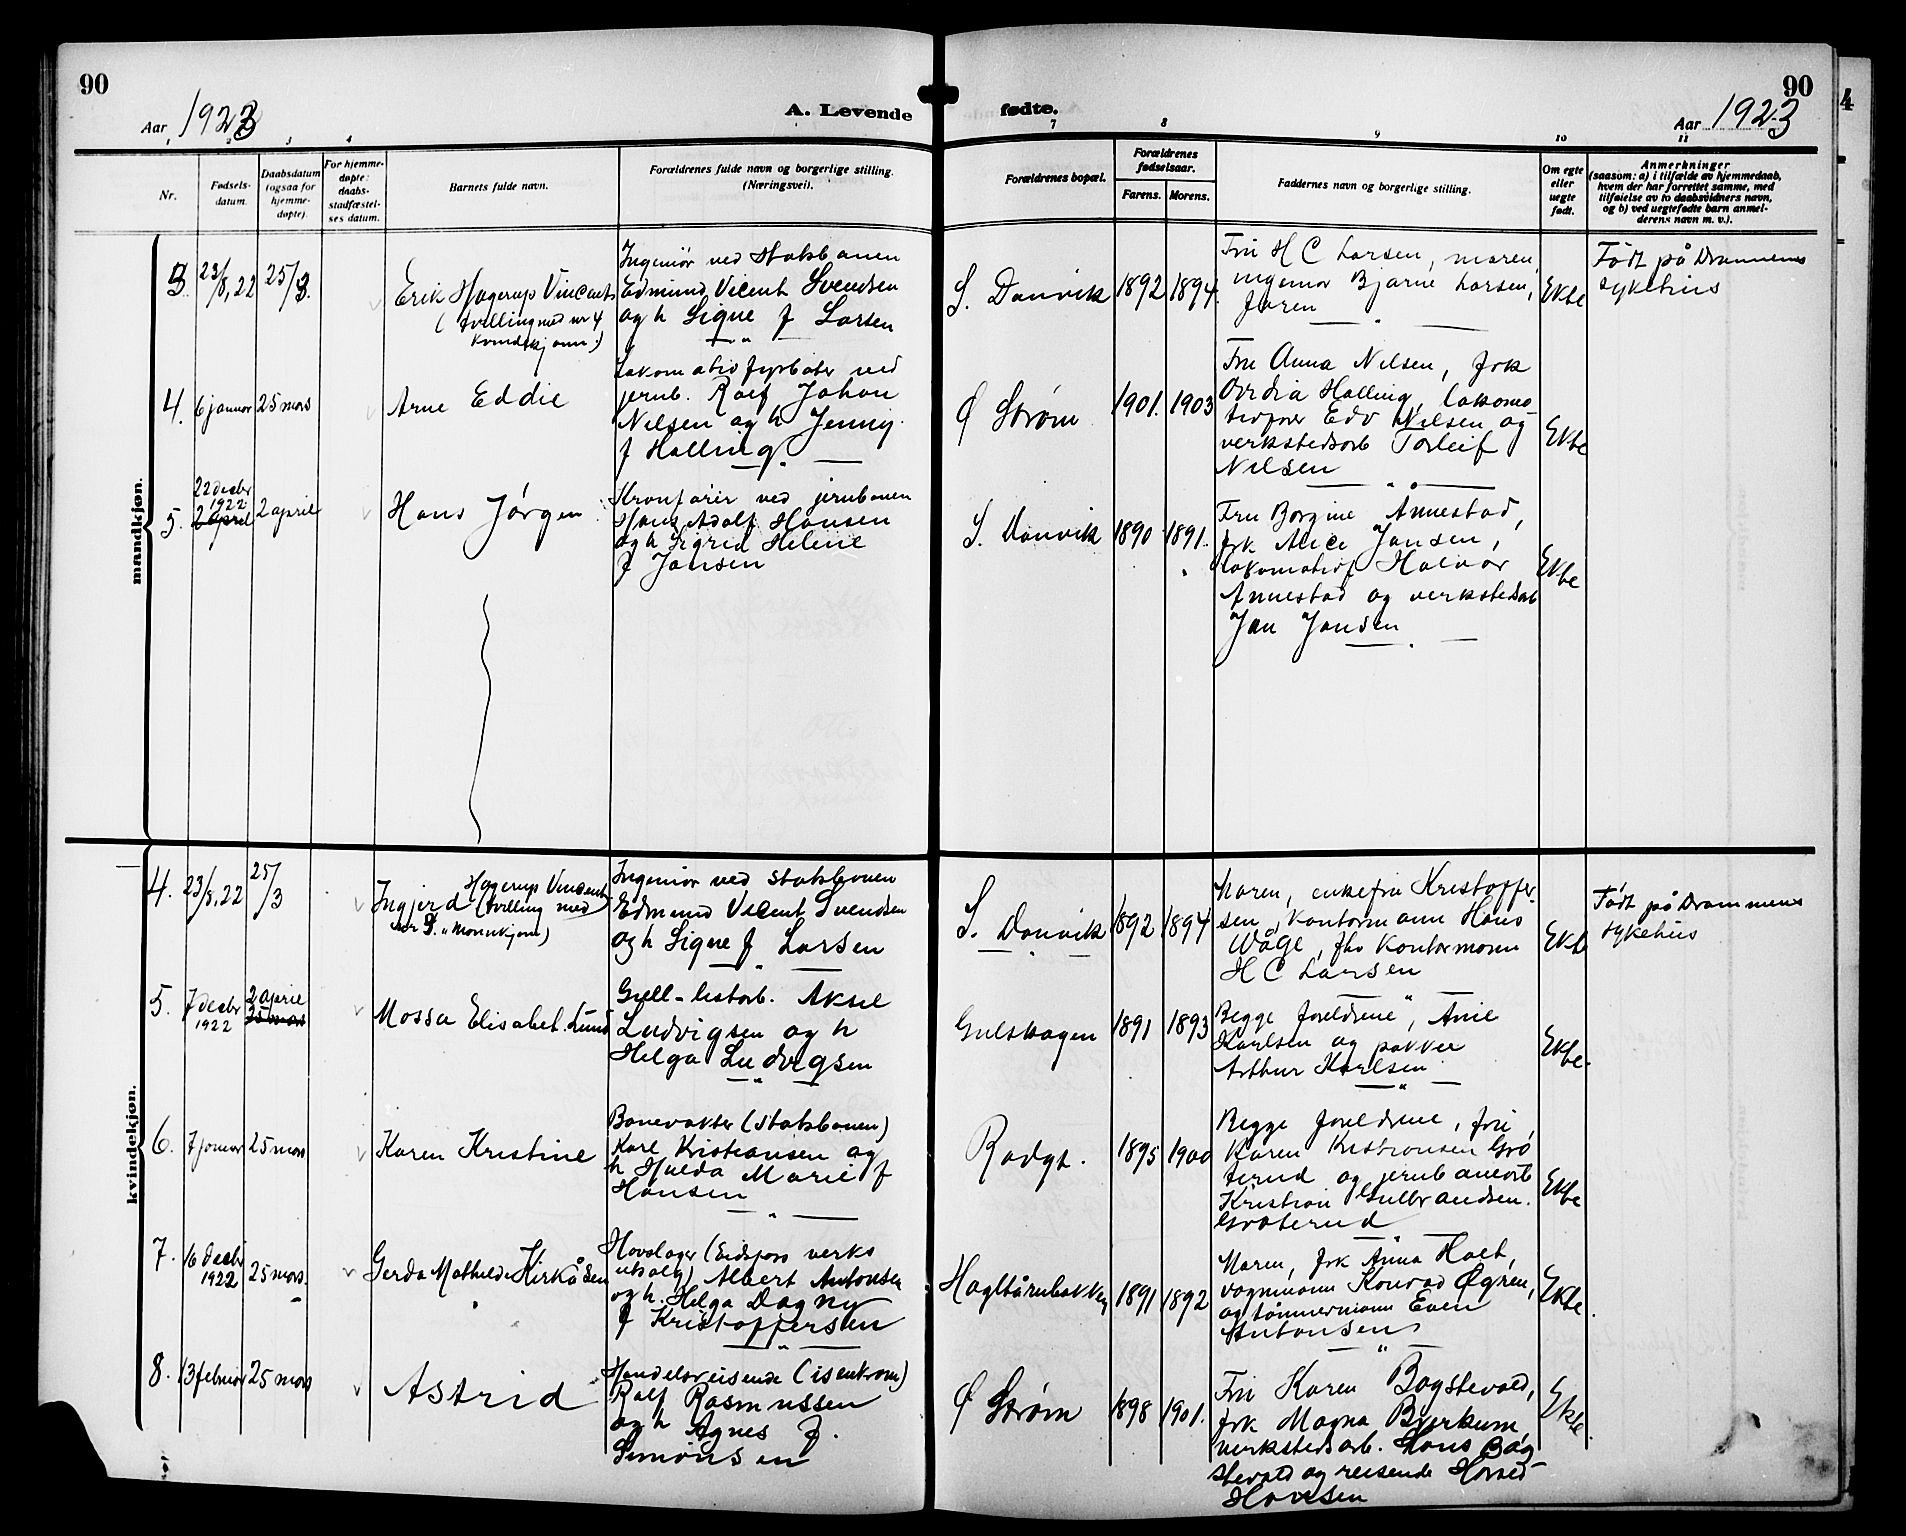 90
Aar 1923
A. Levende
fødte.
90
Aar 1923
1 2 3 4
7 8 9 10 11
Nr.
Fødsels-
datum.
Daabsdatum
(ogsaa for
hjemme-
døpte).
For hjemme-
døpte:
daabs-
stadfæstel-
ses datum.
Barnets fulde navn.
Forældrenes fulde navn og borgerlige stilling.
(Næringsvei).
Forældrenes bopæl.
Forældrenes
fødselsaar.
Farens. Morens.
Faddernes navn og borgerlige stilling.
Om egte
eller
uegte
født.
Anmerkninger
(saasom: a) i tilfælde av hjemmedaab,
hvem der har forrettet samme, med
tilføielse av to daabsvidners navn,
og b) ved uegtefødte barn anmel-
derens navn m. v.).
mandkjøn.
3. 23/8, 22 25/3.
Erik Hagerup Vincents
(tvilling med nr 4
kvindekjønn)
Ingeniør ved Statsbanen
Edmund Vicent Svendsen
og h Signe f Larsen
S. Danvik 1892 1894.
Fru H C Larsen, moren,
ingeniør Bjarne Larsen,
faren
Ekte
Født på Drammens
sykehus
4. 6 januar 25 mars
Arne Eddie
Lokomotivfyrbøter ved
jernb. Rolf Johan
Nilsen og h Jenny
f Halling
Ø Strøm 1901. 1903
Fru Anna Nilsen, frk
Ovidia Halling, lokomo
tivfører Edv Nilsen og
verkstedsarb Torleif
Nilsen
Ekte
5. 22 decbr
1922
2 april 2 april
Hans Jørgen
Kranfører ved jernbanen
Hans Adolf Hansen
og h Sigrid Helene
f Jansen
S. Danvik 1890 1891.
Fru Borgine Annestad,
frk Alice Jansen,
lokomotivf Halvor
Annestad og verkstedsarb
Jan Jansen
Ekte
kvindekjøn.
4. 23/8, 22 25/3
Ingjerd Hagerup Vincent
(tvilling med
nr 3. "Mannkjønn)
Ingeniør ved statsbanen
Edmund Vicent Svendsen
og h Signe f Larsen
S. Danvik 1892 1894
Moren, enkefru Kristoffer
sen, kontormann Hans
Wåge, fhv kontormann
H C Larsen
Ekte
Født på Drammens
sykehus
5. 7 decbr
1922
2 april
25 mars
Mossa Elisabet Lund
Gull-listarb. Aksel
Ludvigsen og h
Helga Ludvigsen
Gulskogen 1891 1893
Begge foreldrene, Anie
Karlsen og pakker
Arthur Karlsen
Ekte.
6. 7 januar 25 mars
Karen Kristine
Banevakter (statsbanen)
Karl Kristiansen og
h Hulda Marie f
Hansen
Rødgt. 1895 1900
Begge foreldrene, fru
Karen Kristiansen Grø
terud og jernbanearb
Kristian Gulbrandsen
Grøterud
Ekte
7. 16 decbr
1922 25 mars.
Gerda Mathilde Kirkåsen
Hovslager (Eidsfoss verks
utsalg) Albert Antonsen
og h. Helga Dagny
f Kristoffersen
Hagltårnbakken 1891 1892
Moren, frk Anna Holt,
vognmann Konrad Øgren,
og tømmermann Even
Antonsen
Ekte
8. 13 februar 25 mars
Astrid
Handelsreisende (isenkram)
Rolf Rasmussen
og h Agnes f.
Simonsen
Ø Strøm 1898 1901.
Fru Karen Bagstevold,
frk Magna Bjerkum,
verkstedsarb. Hans Bag
stevold og reisende Harald
Hansen
Ekte